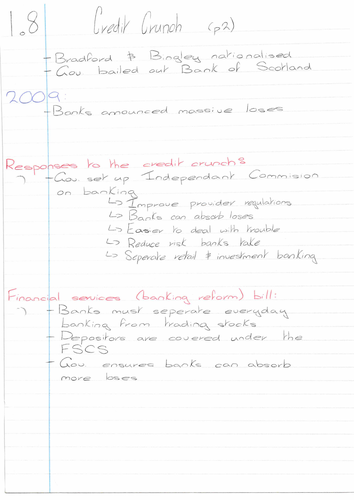 1.8 Credit Crunch (p2)
- Bradford & Bingley nationalised
- Gov. bailed out Bank of Scotland
2009:
- Banks announced massive loses
Responses to the credit crunch:
- Gov. set up Independant Commision
on banking
↳ Improve provider regulations
↳ Banks can absorb loses
↳ Easier to deal with trouble
↳ Reduce risk banks take
↳ Seperate retail & investment banking
Financial services (banking reform) bill:
- Banks must seperate everyday
banking from trading stocks
- Depositors are covered under the
FSCS
- Gov. ensures banks can absorb
more loses